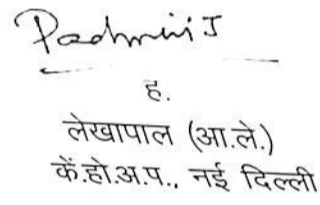 Padmini J
ह.
लेखापाल (आ.ले.)
कें.हो.अ.प., नई दिल्ली